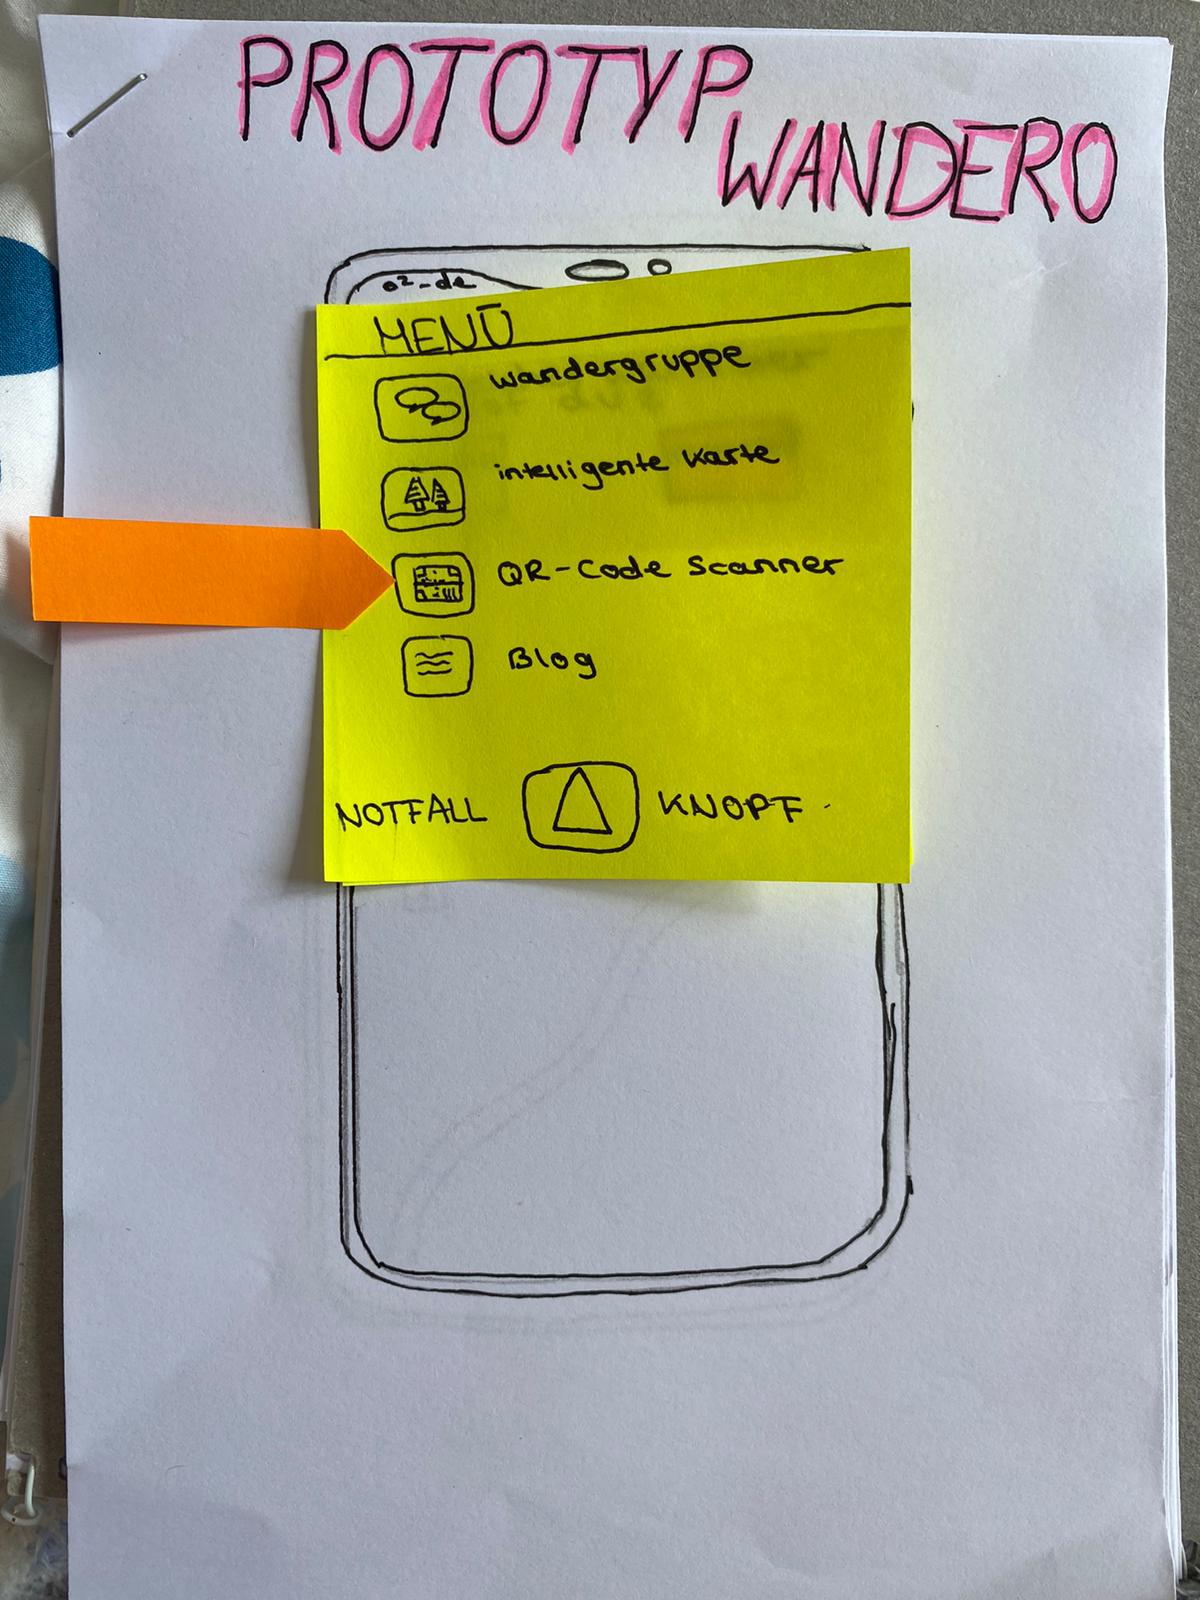 PROTOTYP
WANDERO
o²-de
MENÜ
wandergruppe
intelligente Karte
QR-Code Scanner
Blog
NOTFALL KNOPF